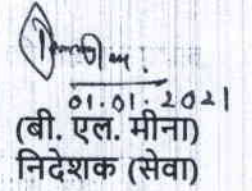 01.01.2021
(बी. एल. मीना)
निदेशक (सेवा)